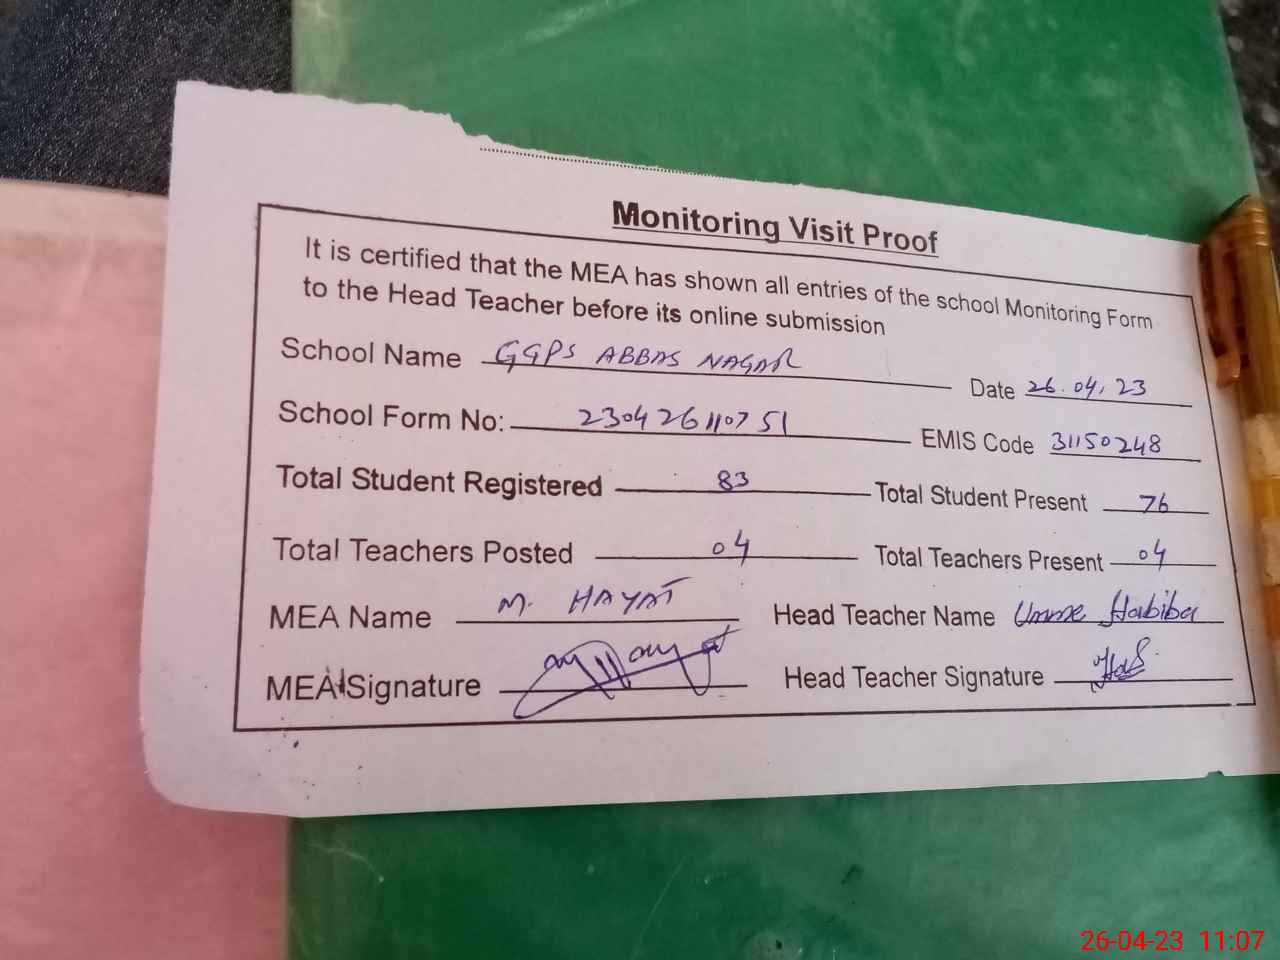 Monitoring Visit Proof
It is certified that the MEA has shown all entries of the school Monitoring Form
to the Head Teacher before its online submission
School Name GGPS ABBAS NAGAR Date 26.04.23
School Form No: 230426110751 EMIS Code 31150248
Total Student Registered 83 Total Student Present 76
Total Teachers Posted 04 Total Teachers Present 04
MEA Name M. HAYAT Head Teacher Name Umme Habiba
MEA Signature Head Teacher Signature
26-04-23 11:07